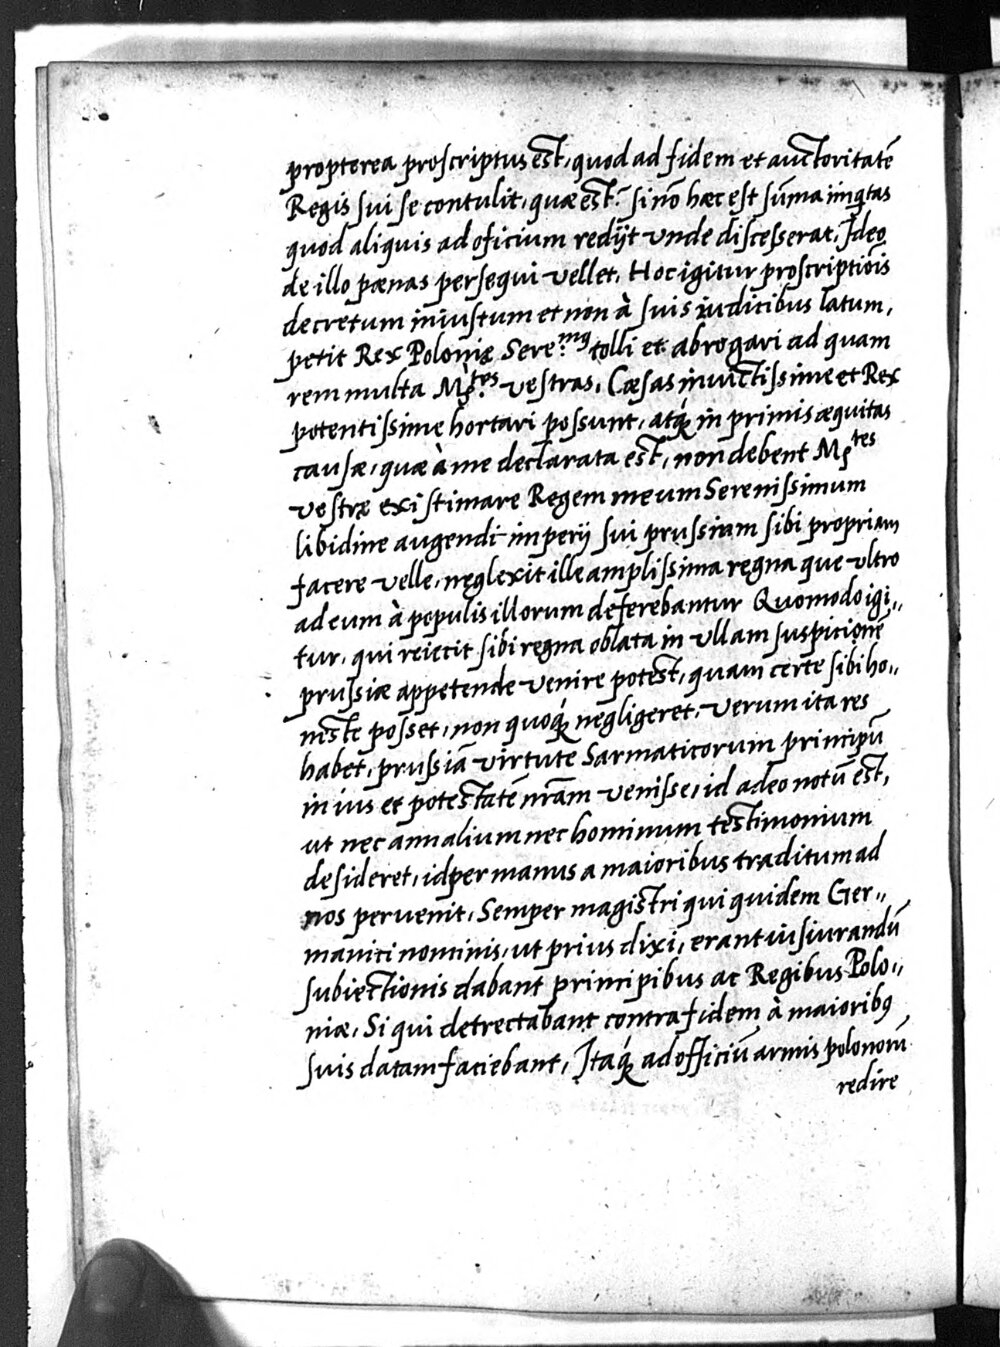 propterea proscriptus est, quod ad fidem et auctoritatẽ
Regis sui se contulit, quæ est? si nõ hæc est sũma iniq̃tas
quod aliquis ad oficium redijt unde discesserat, Ideo
de illo pœnas persequi vellet, Hoc igitur proscriptiõis
decretum iniustum et non à suis iudicibus latum,
petit Rex Poloniæ Sere.mꝰ tolli et abrogari ad quam
rem multa M.tes vestras, Cæsas invictissime et Rex
potentissime hortari possunt, atq́ꝫ in primis æquitas
causæ, quæ à me declarata est, non debent M.tes
vestræ existimare Regem meum Serenissimum
libidine augendi imperij sui prussiam sibi propriam
facere velle, neglexit ille amplissima regna que ultro
ad eum à populis illorum deferebantur Quomodo igi„
tur, qui reiecit sibi regna oblata in ullam suspicionẽ
prussiæ appetende venire potest, quam certe sibi ho„
neste posset, non quoq́ꝫ negligeret, Verum ita res
habet, prussiã virtute Sarmaticorum principũ
in ius et potestatẽ nr̃am venisse, id adeo notũ est,
ut nec annalium nec hominum testimonium
desideret, id per manus a maioribus traditum ad
nos pervenit, Semper magistri qui quidem Ger„
manici nominis, ut prius dixi, erant iusiurandũ
subiectionis dabant principibus ac Regibus Polo„
niæ, Si qui detrectabant contra fidem à maioribꝰ
suis datam faciebant, Itaq́ꝫ ad officiũ armis polonorũ
redire